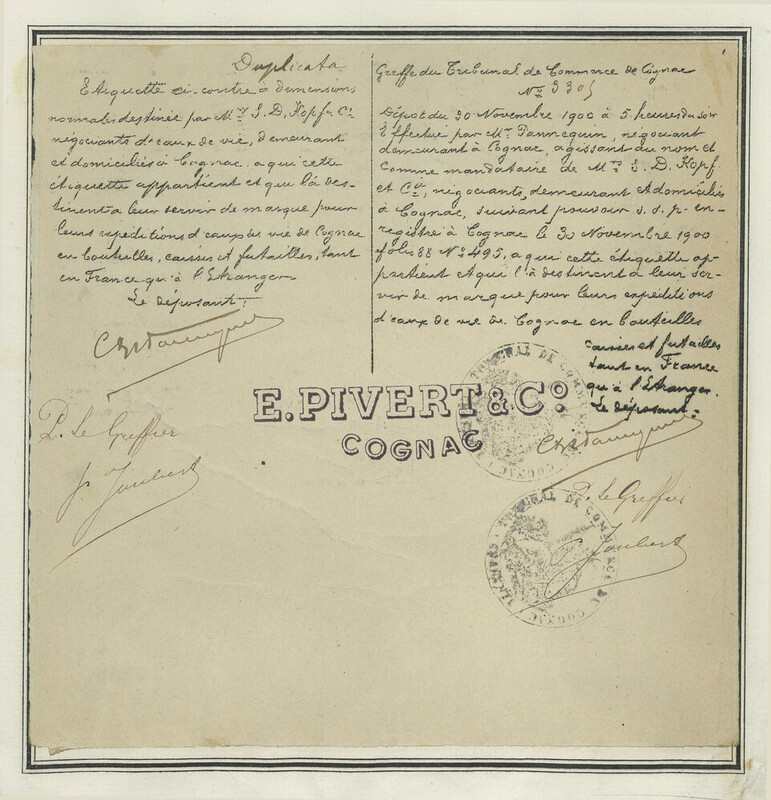 Duplicata
Etiquette ci-contre à dimensions
normales destinée par Mrs S. D. Kopf & Cie
négociants d'eaux de vie, demeurant
et domiciliés à Cognac a qui cette
étiquette appartient et qui l'à des-
tinent a leur servir de marque pour
leurs expéditions d'eaux de vie de Cognac
en bouteilles, caisses et futailles, tant
en France qu'à l'Etranger
Le déposant:
P. Le Greffier
Joubert
Greffe du Tribunal de Commerce de Cognac
No 3305
Dépôt du 30 Novembre 1900 à 5 heures du soir
Effectué par Mr Tannequin, négociant
demeurant à Cognac, agissant au nom et
Comme mandataire de Mrs S. D. Kopf
et Cie, négociants, demeurant et domiciliés
à Cognac, suivant pouvoir s.s.p. en-
registré à Cognac le 30 Novembre 1900
folio 88 No 495, a qui cette étiquette ap-
partient et qui l'à destinent a leur ser-
vir de marque pour leurs expéditions
d'eaux de vie de Cognac en bouteilles
caisses et futailles
tant en France
qu'à l'Etranger.
Le déposant
E. PIVERT & Co.
COGNAC
P. Le Greffier
Joubert
TRIBUNAL DE COMMERCE DE COGNAC
TRIBUNAL DE COMMERCE DE COGNAC